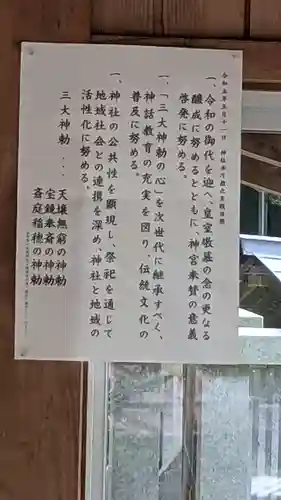 令和五年五月十一日 神社本庁
一、令和の御代を迎へ、皇室敬慕の念の更なる
醸成に努めるとともに、神宮奉賛の意義
啓発に努める。
一、「三大神勅の心」を次世代に継承すべく、
神話教育の充実を図り、伝統文化の
普及に努める。
一、神社の公共性を顕現し、祭祀を通じて
地域社会との連携を深め、神社と地域の
活性化に努める。
三大神勅・・・天壌無窮の神勅
宝鏡奉斎の神勅
斎庭稲穂の神勅